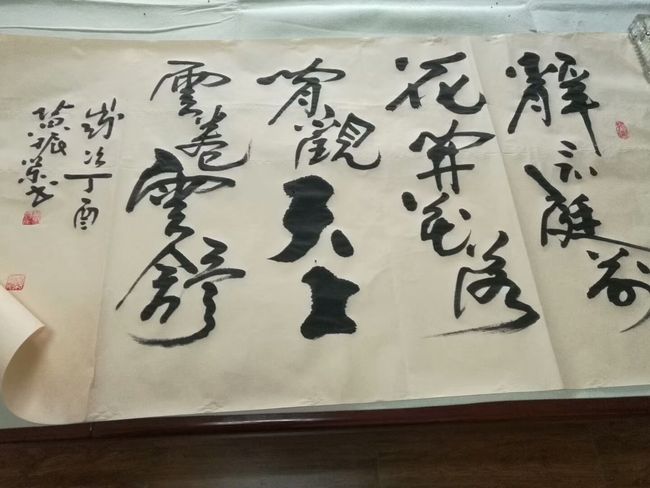 靜庭前
花開花落
閒觀天上
雲卷雲舒
歲次丁酉
振